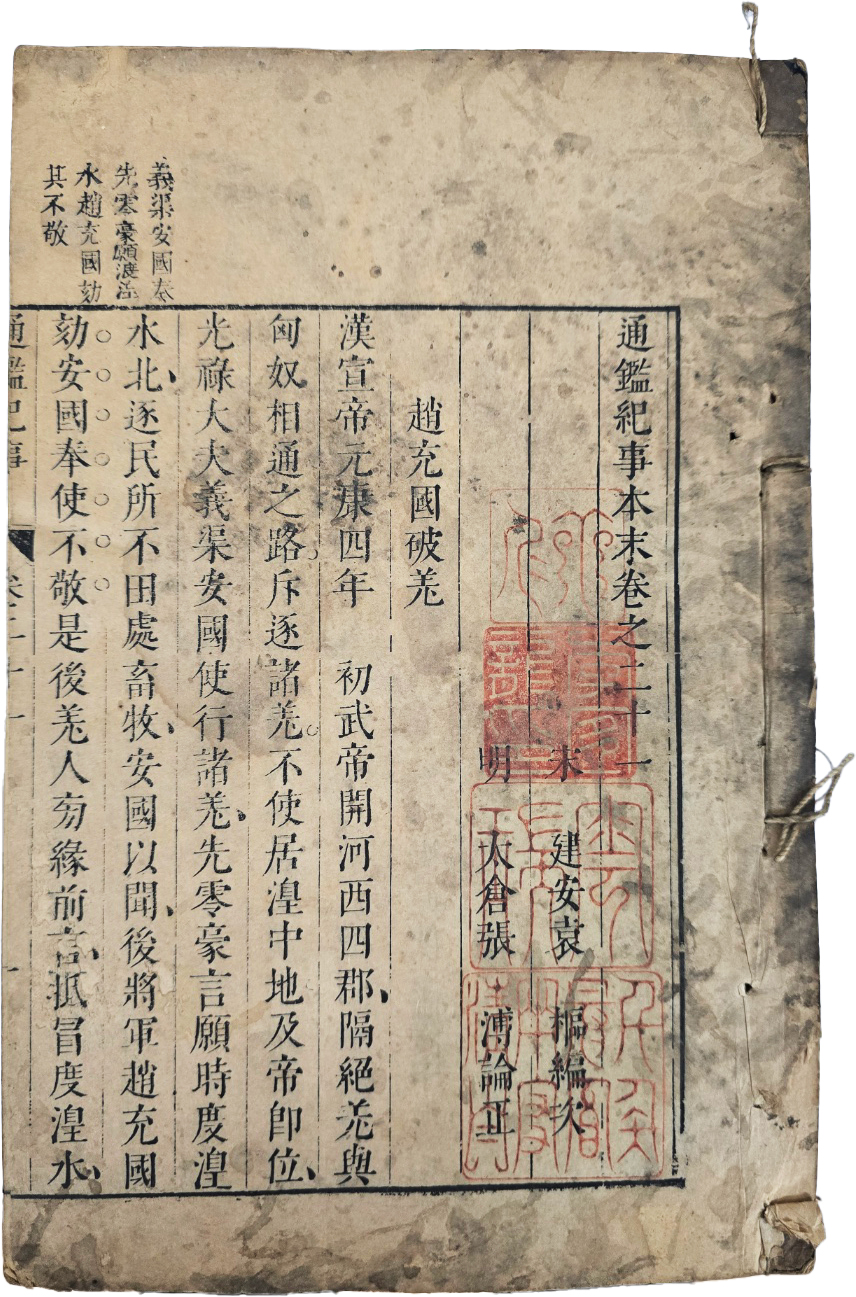 通鑑紀事本末卷之二十一
宋 建安袁 樞編次
明 太倉張 溥論正
趙充國破羌
漢宣帝元康四年 初武帝開河西四郡、隔絕羌與
匈奴相通之路。斥逐諸羌。不使居湟中地及帝卽位、
光祿大夫義渠安國使行諸羌、先零豪言願時度湟
水北、逐民所不田處畜牧、安國以聞、後將軍趙充國
劾安國奉使不敬是後羌人旁緣前言、抵冒度湟水、
義渠安國奉
先零豪願渡湟
水趙充國劾
其不敬
通鑑紀事